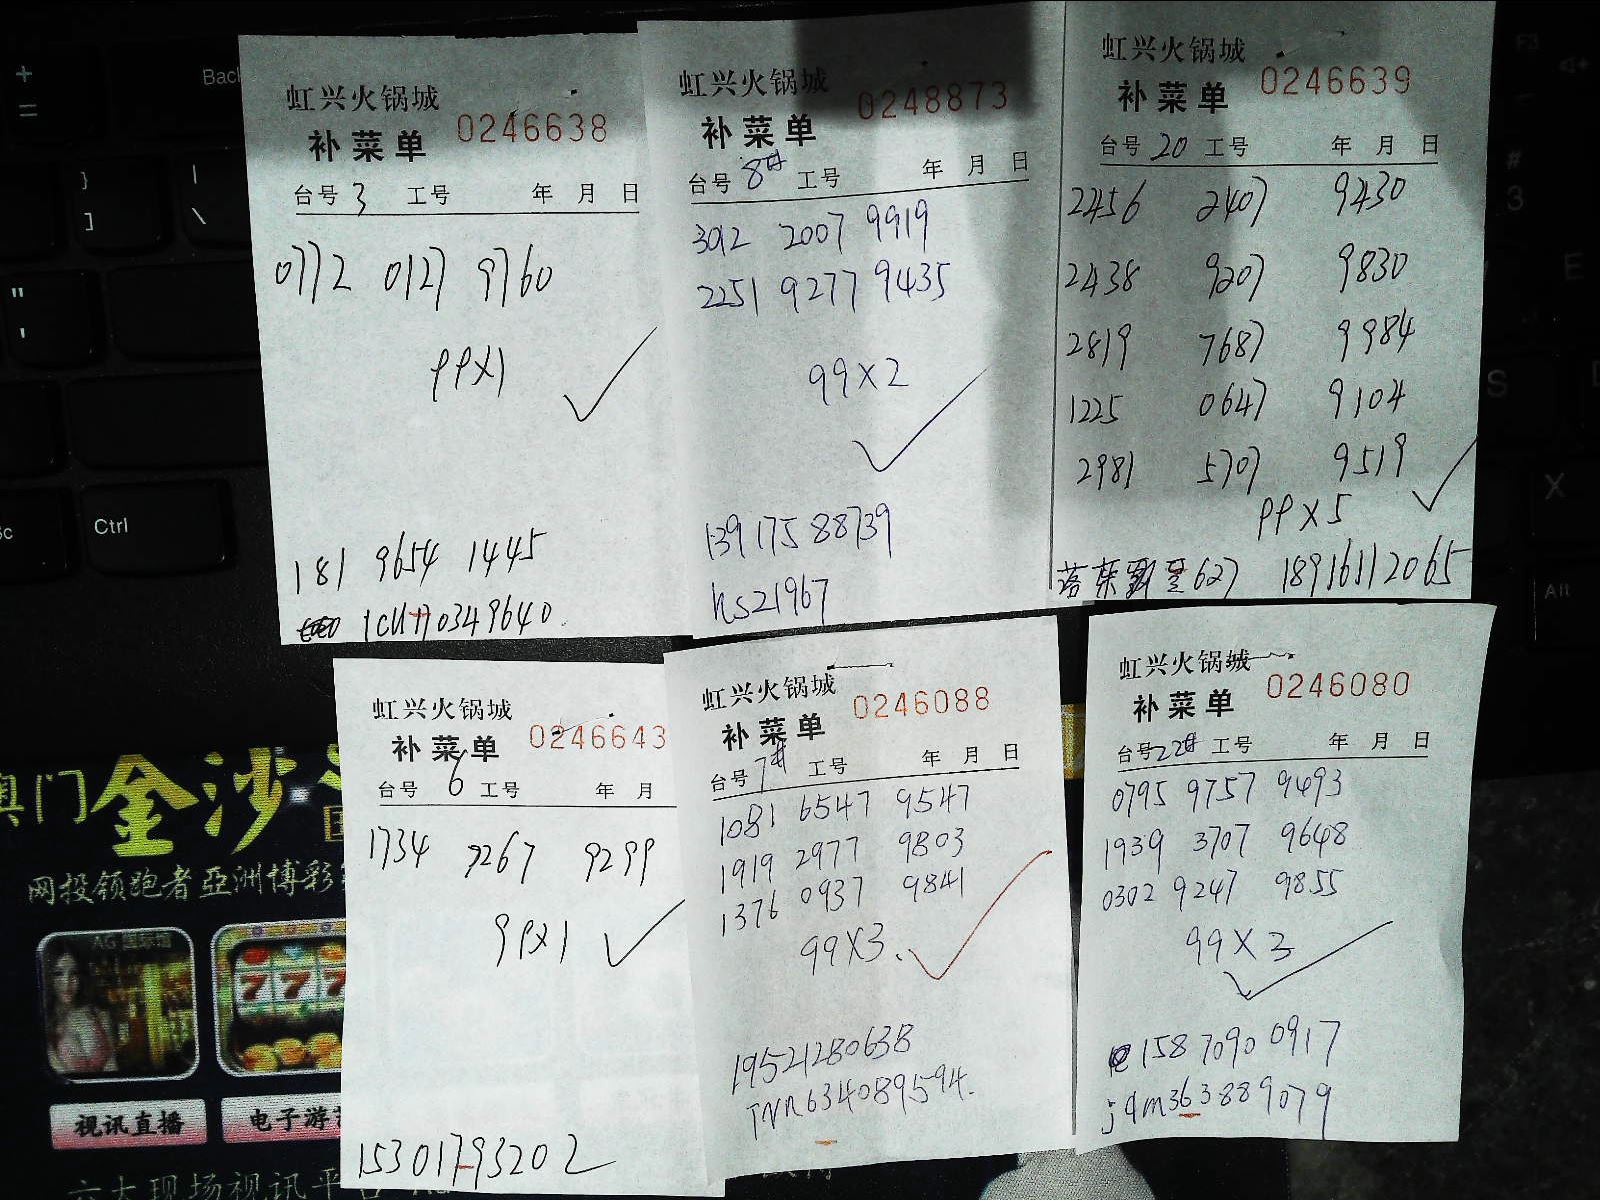 虹兴火锅城
补菜单 0246638
台号 3 工号 年 月 日
0772 0127 9760
PPX1
181 9654 1445
虹兴火锅城
补菜单 0248873
台号 8 工号 年 月 日
3012 2007 9919
2251 9277 9435
99X2
139 175 88739
hs21967
虹兴火锅城
补菜单 0246639
台号 20 工号 年 月 日
2456 2407 9430
2438 9207 9830
2819 7687 9984
1225 0647 9104
2981 5707 9519
PPX5
627 18916112065
虹兴火锅城
补菜单 0246643
台号 6 工号 年 月
1734 7267 9299
99X1
15301793202
虹兴火锅城
补菜单 0246088
台号 7# 工号 年 月 日
1081 6547 9547
1919 2977 9803
1376 0937 9841
99X3.
19521280638
虹兴火锅城
补菜单 0246080
台号 22# 工号 年 月 日
0795 9757 9493
1939 3707 9648
0302 9247 9855
99X3
158 7090 0917
jqm363889079
+
=
Back
}
]
|
\
"
'
Ctrl
F3
#
3
E
S
X
Alt
澳门金沙
网投领跑者亞洲博彩
视讯直播
电子游
六大现场视讯平台